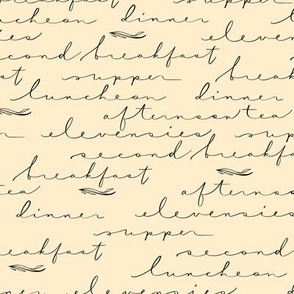 luncheon dinner
elevensies
second breakfast
st supper break
luncheon dinner
afternoon tea
elevensies sup
second breakfast
breakfast
tea afternoon
dinner elevensies
supper
eakfast second
luncheon
dinner elevensies